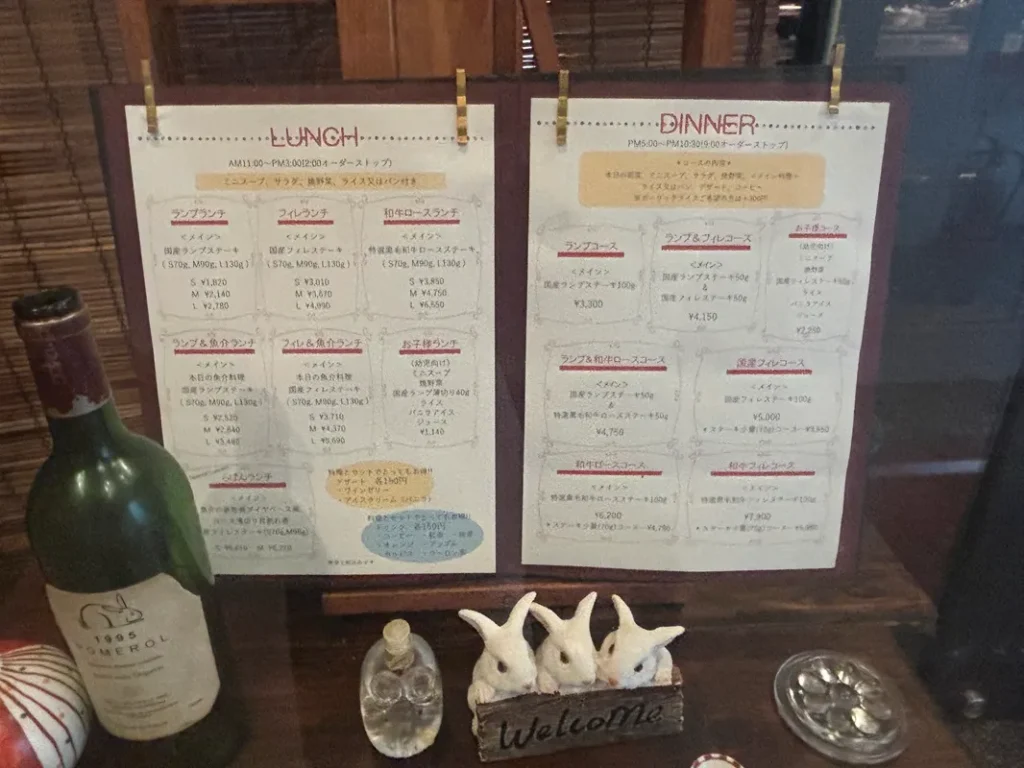 LUNCH
AM11:00～PM3:00(2:00オーダーストップ)
ミニスープ、サラダ、焼野菜、ライス又はパン付き
ランプランチ
＜メイン＞
国産ランプステーキ
(S70g, M90g, L130g)
S ¥1,820
M ¥2,140
L ¥2,780
フィレランチ
＜メイン＞
国産フィレステーキ
(S70g, M90g, L130g)
S ¥3,010
M ¥3,670
L ¥4,990
和牛ロースランチ
＜メイン＞
特選黒毛和牛ロースステーキ
(S70g, M90g, L130g)
S ¥3,850
M ¥4,750
L ¥6,550
ランプ&魚介ランチ
＜メイン＞
本日の魚介料理
国産ランプステーキ
(S70g, M90g, L130g)
S ¥2,520
M ¥2,840
L ¥3,480
フィレ&魚介ランチ
＜メイン＞
本日の魚介料理
国産フィレステーキ
(S70g, M90g, L130g)
S ¥3,710
M ¥4,370
L ¥5,690
お子様ランチ
(幼児向け)
ミニスープ
焼野菜
国産ランプ薄切り40g
ライス
バニラアイス
ジュース
¥1,140
ランチ
＜メイン＞
料理とセットでとってもお得!!
デザート 各150円
DINNER
PM5:00～PM10:30(9:00オーダーストップ)
＊コースの内容＊
本日の前菜、ミニスープ、サラダ、焼野菜、＜メイン料理＞
ライス又はパン、デザート、コーヒー
ランプコース
＜メイン＞
国産ランプステーキ100g
¥3,300
ランプ&フィレコース
＜メイン＞
国産ランプステーキ50g
&
国産フィレステーキ50g
¥4,150
お子様コース
(幼児向け)
ミニスープ
焼野菜
ライス
バニラアイス
ジュース
ランプ&和牛ロースコース
＜メイン＞
国産ランプステーキ50g
&
特選黒毛和牛ロースステーキ50g
¥4,750
国産フィレコース
＜メイン＞
国産フィレステーキ100g
¥5,000
和牛ロースコース
＜メイン＞
特選黒毛和牛ロースステーキ100g
¥6,200
和牛フィレコース
＜メイン＞
¥7,900
1995
POMEROL
Welcome